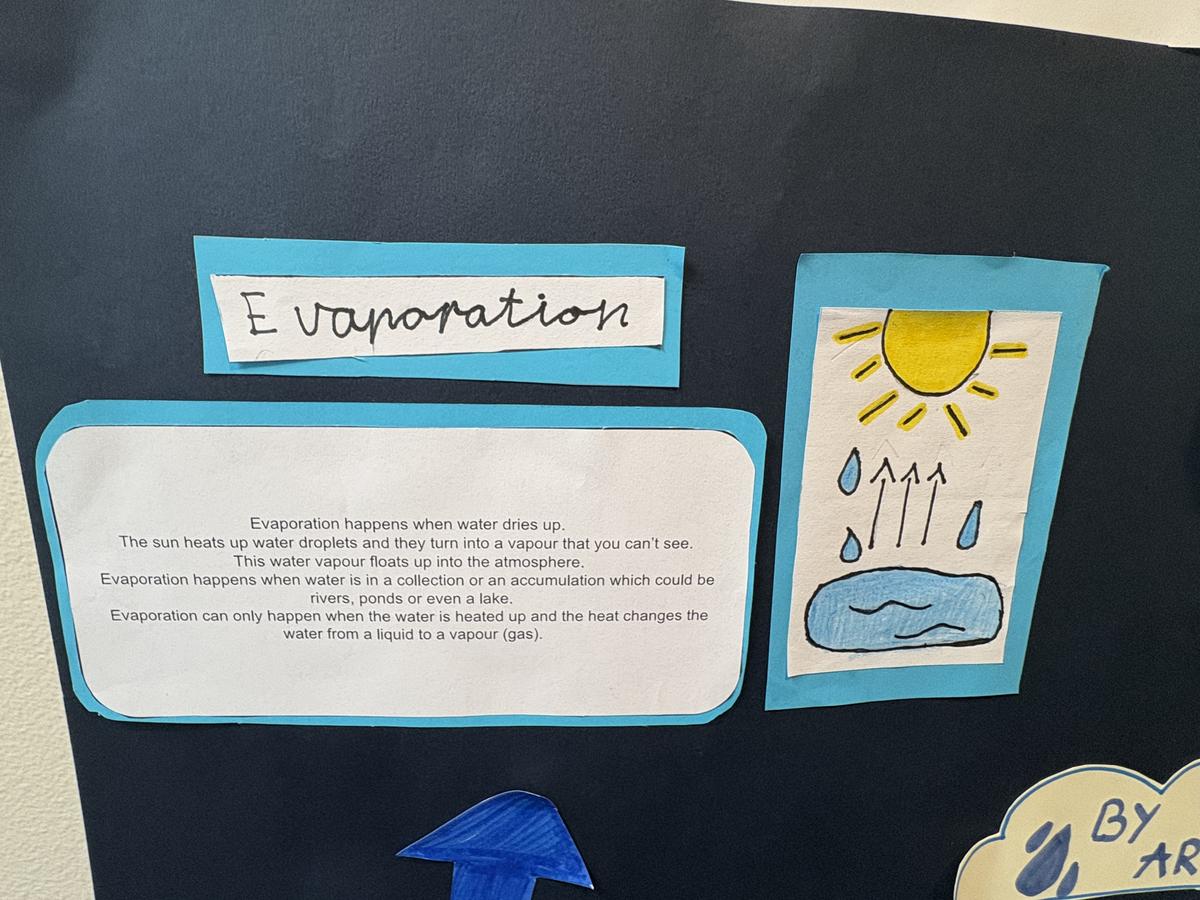 Evaporation
Evaporation happens when water dries up.
The sun heats up water droplets and they turn into a vapour that you can't see.
This water vapour floats up into the atmosphere.
Evaporation happens when water is in a collection or an accumulation which could be
rivers, ponds or even a lake.
Evaporation can only happen when the water is heated up and the heat changes the
water from a liquid to a vapour (gas).
BY